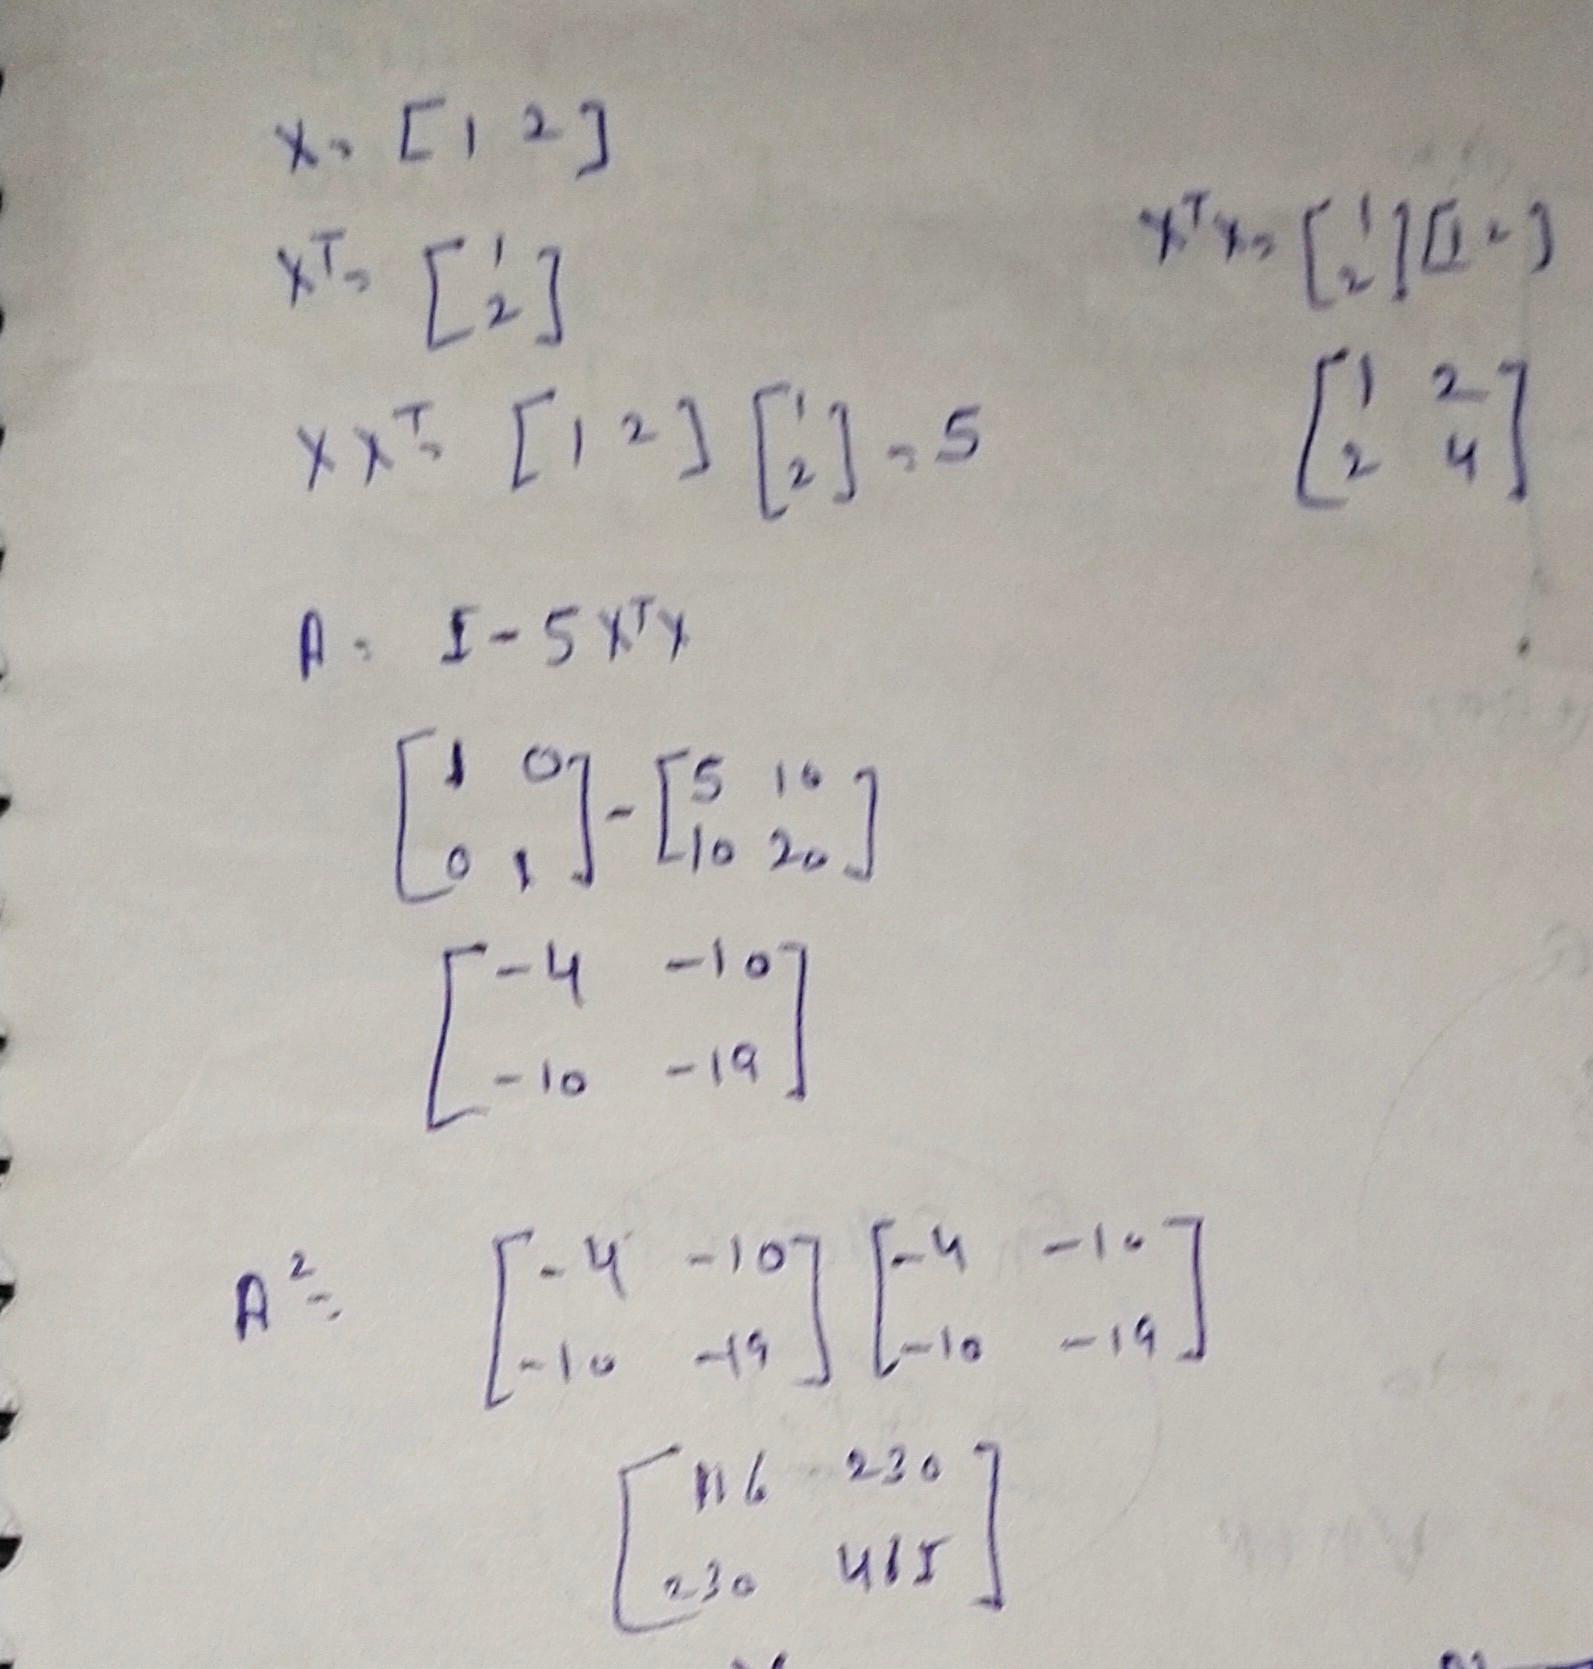 X = [1 2]
X^T = [1
2]
XX^T = [1 2] [1
2] = 5
X^T X = [1
2] [1 2]
[1 2
2 4]
A = I - 5X^T X
[1 0
0 1] - [5 10
10 20]
[-4 -10
-10 -19]
A^2 = [-4 -10
-10 -19] [-4 -10
-10 -19]
[116 230
230 461]